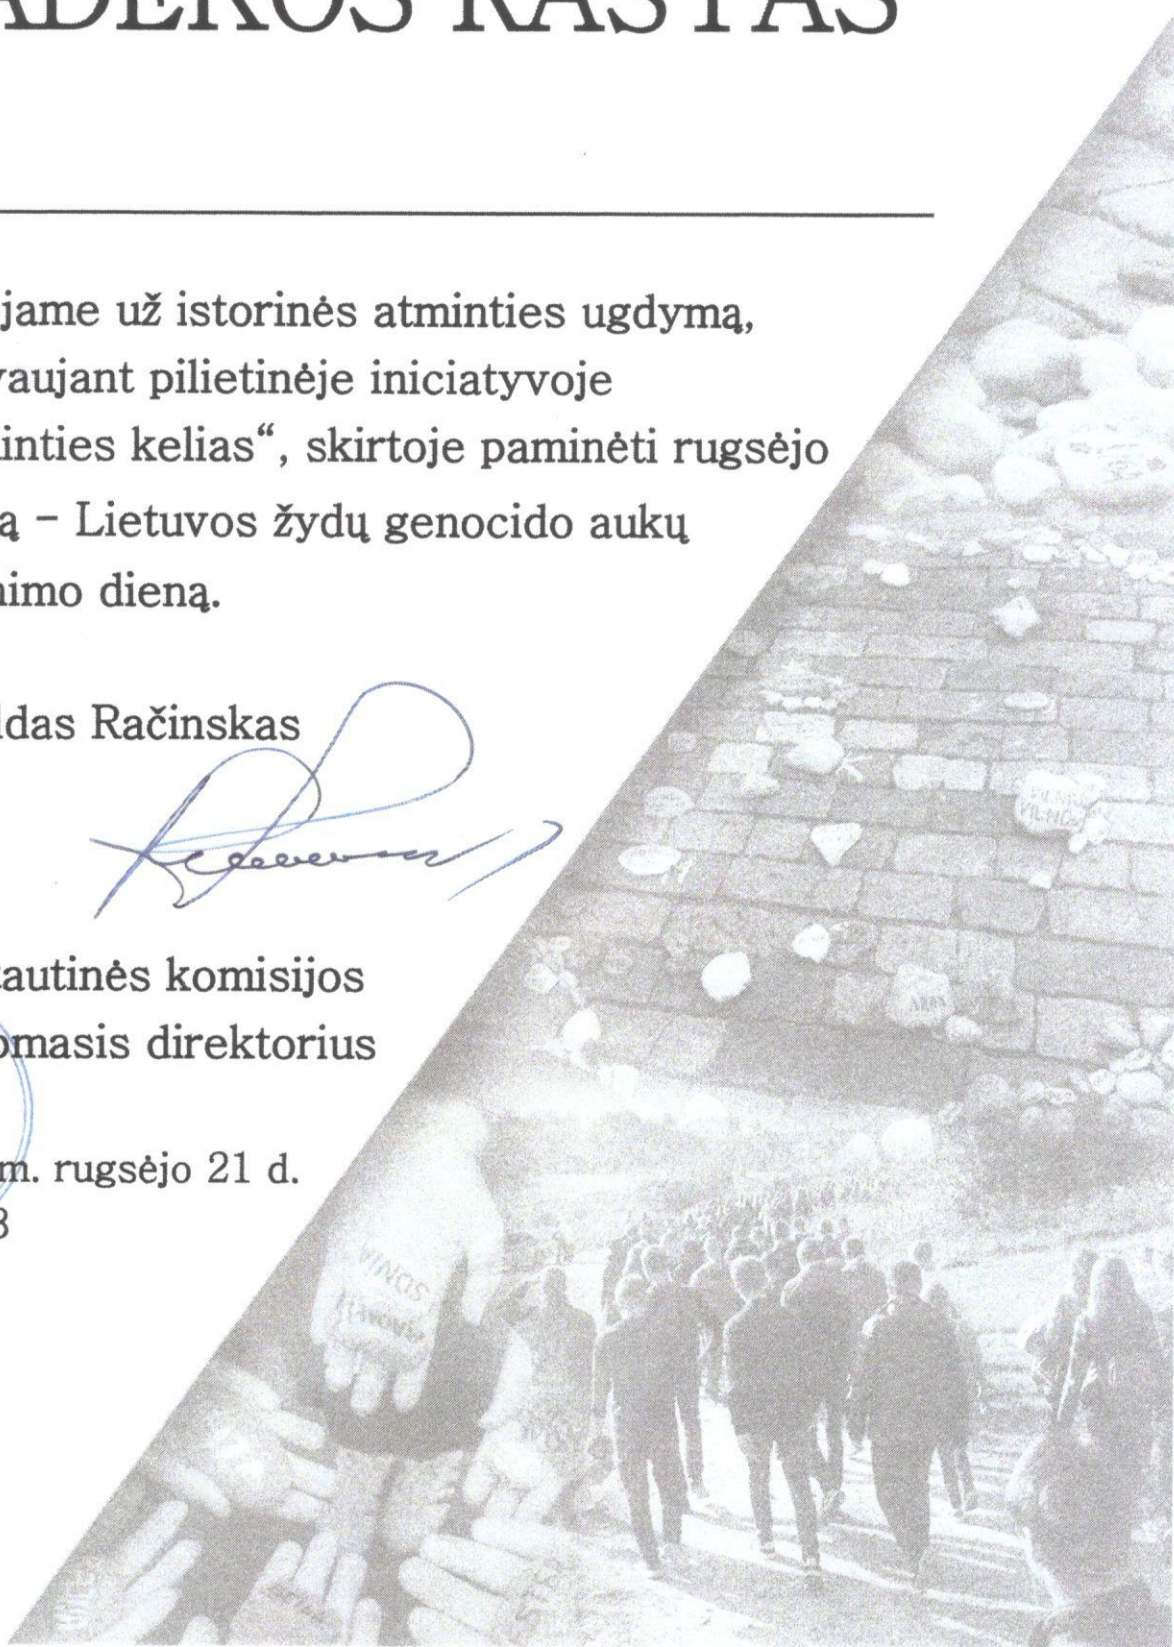 ADĖKOS RAŠTAS
jame už istorinės atminties ugdymą,
vaujant pilietinėje iniciatyvoje
inties kelias“, skirtoje paminėti rugsėjo
ą – Lietuvos žydų genocido aukų
nimo dieną.
ldas Račinskas
tautinės komisijos
omasis direktorius
m. rugsėjo 21 d.
3
VINOS